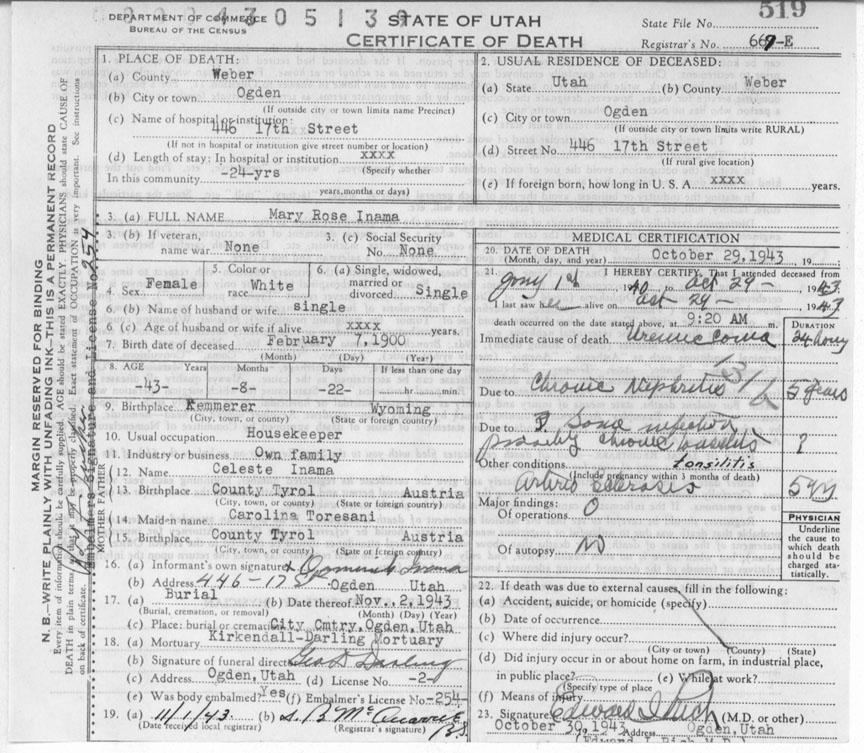 DEPARTMENT OF COMMERCE
BUREAU OF THE CENSUS
STATE OF UTAH
CERTIFICATE OF DEATH
519
State File No.
Registrar's No. 667-E
MARGIN RESERVED FOR BINDING
N. B.—WRITE PLAINLY WITH UNFADING INK—THIS IS A PERMANENT RECORD
Every item of information should be carefully supplied. AGE should be stated EXACTLY. PHYSICIANS should state CAUSE OF
DEATH in plain terms, that it may be properly classified. Exact statement of OCCUPATION is very important. See instructions
on back of certificate.
Embalmers Signature and License No. 254
1. PLACE OF DEATH:
(a) County Weber
(b) City or town Ogden
(If outside city or town limits name Precinct)
(c) Name of hospital or institution:
446 17th Street
(If not in hospital or institution give street number or location)
(d) Length of stay: In hospital or institution xxxx
(Specify whether
In this community -24-yrs
years, months or days)
2. USUAL RESIDENCE OF DECEASED:
(a) State Utah (b) County Weber
(c) City or town Ogden
(If outside city or town limits write RURAL)
(d) Street No. 446 17th Street
(If rural give location)
(e) If foreign born, how long in U. S. A xxxx years.
3. (a) FULL NAME Mary Rose Inama
3. (b) If veteran, name war None
3. (c) Social Security No. None
4. Sex Female
5. Color or race White
6. (a) Single, widowed, married or divorced Single
6. (b) Name of husband or wife single
6. (c) Age of husband or wife if alive xxxx years.
7. Birth date of deceased February 7, 1900
(Month) (Day) (Year)
8. AGE Years Months Days If less than one day
-43- -8- -22- hr. min.
9. Birthplace Kemmerer Wyoming
(City, town, or county) (State or foreign country)
10. Usual occupation Housekeeper
11. Industry or business Own family
FATHER
12. Name Celeste Inama
13. Birthplace County Tyrol Austria
(City, town, or county) (State or foreign country)
MOTHER
14. Maiden name Carolina Toresani
15. Birthplace County Tyrol Austria
(City, town, or county) (State or foreign country)
16. (a) Informant's own signature Inama
(b) Address 446-17 St Ogden Utah
17. (a) Burial (b) Date thereof Nov., 2, 1943
(Burial, cremation, or removal) (Month) (Day) (Year)
(c) Place: burial or cremation City Cmtry, Ogden, Utah
18. (a) Mortuary Kirkendall-Darling Mortuary
(b) Signature of funeral director Geo D Darling
(c) Address Ogden, Utah (d) License No. -2-
(e) Was body embalmed? Yes (f) Embalmer's License No. -254-
19. (a) 11/1/43 (b)
(Date received local registrar) (Registrar's signature)
MEDICAL CERTIFICATION
20. DATE OF DEATH
(Month, day, and year) October 29, 1943, 19
21. I HEREBY CERTIFY, That I attended deceased from
1st, 1940, to Oct 29-, 1943.
I last saw her alive on Oct 29-, 1943
death occurred on the date stated above, at 9:20 AM m.
DURATION
Immediate cause of death Uremic coma 24 hours
Due to Chronic Nephritis 5 years
Due to Some infection
probably chronic ?
Other conditions tonsilitis
(Include pregnancy within 3 months of death)
Arterio Sclerosis 5 yrs
Major findings:
Of operations 0
Of autopsy No
PHYSICIAN
Underline
the cause to
which death
should be
charged sta-
tistically.
22. If death was due to external causes, fill in the following:
(a) Accident, suicide, or homicide (specify)
(b) Date of occurrence
(c) Where did injury occur?
(City or town) (County) (State)
(d) Did injury occur in or about home on farm, in industrial place,
in public place? (e) While at work?
(Specify type of place
(f) Means of injury
23. Signature Edward I Rich (M.D. or other)
October 30, 1943 Address Ogden, Utah